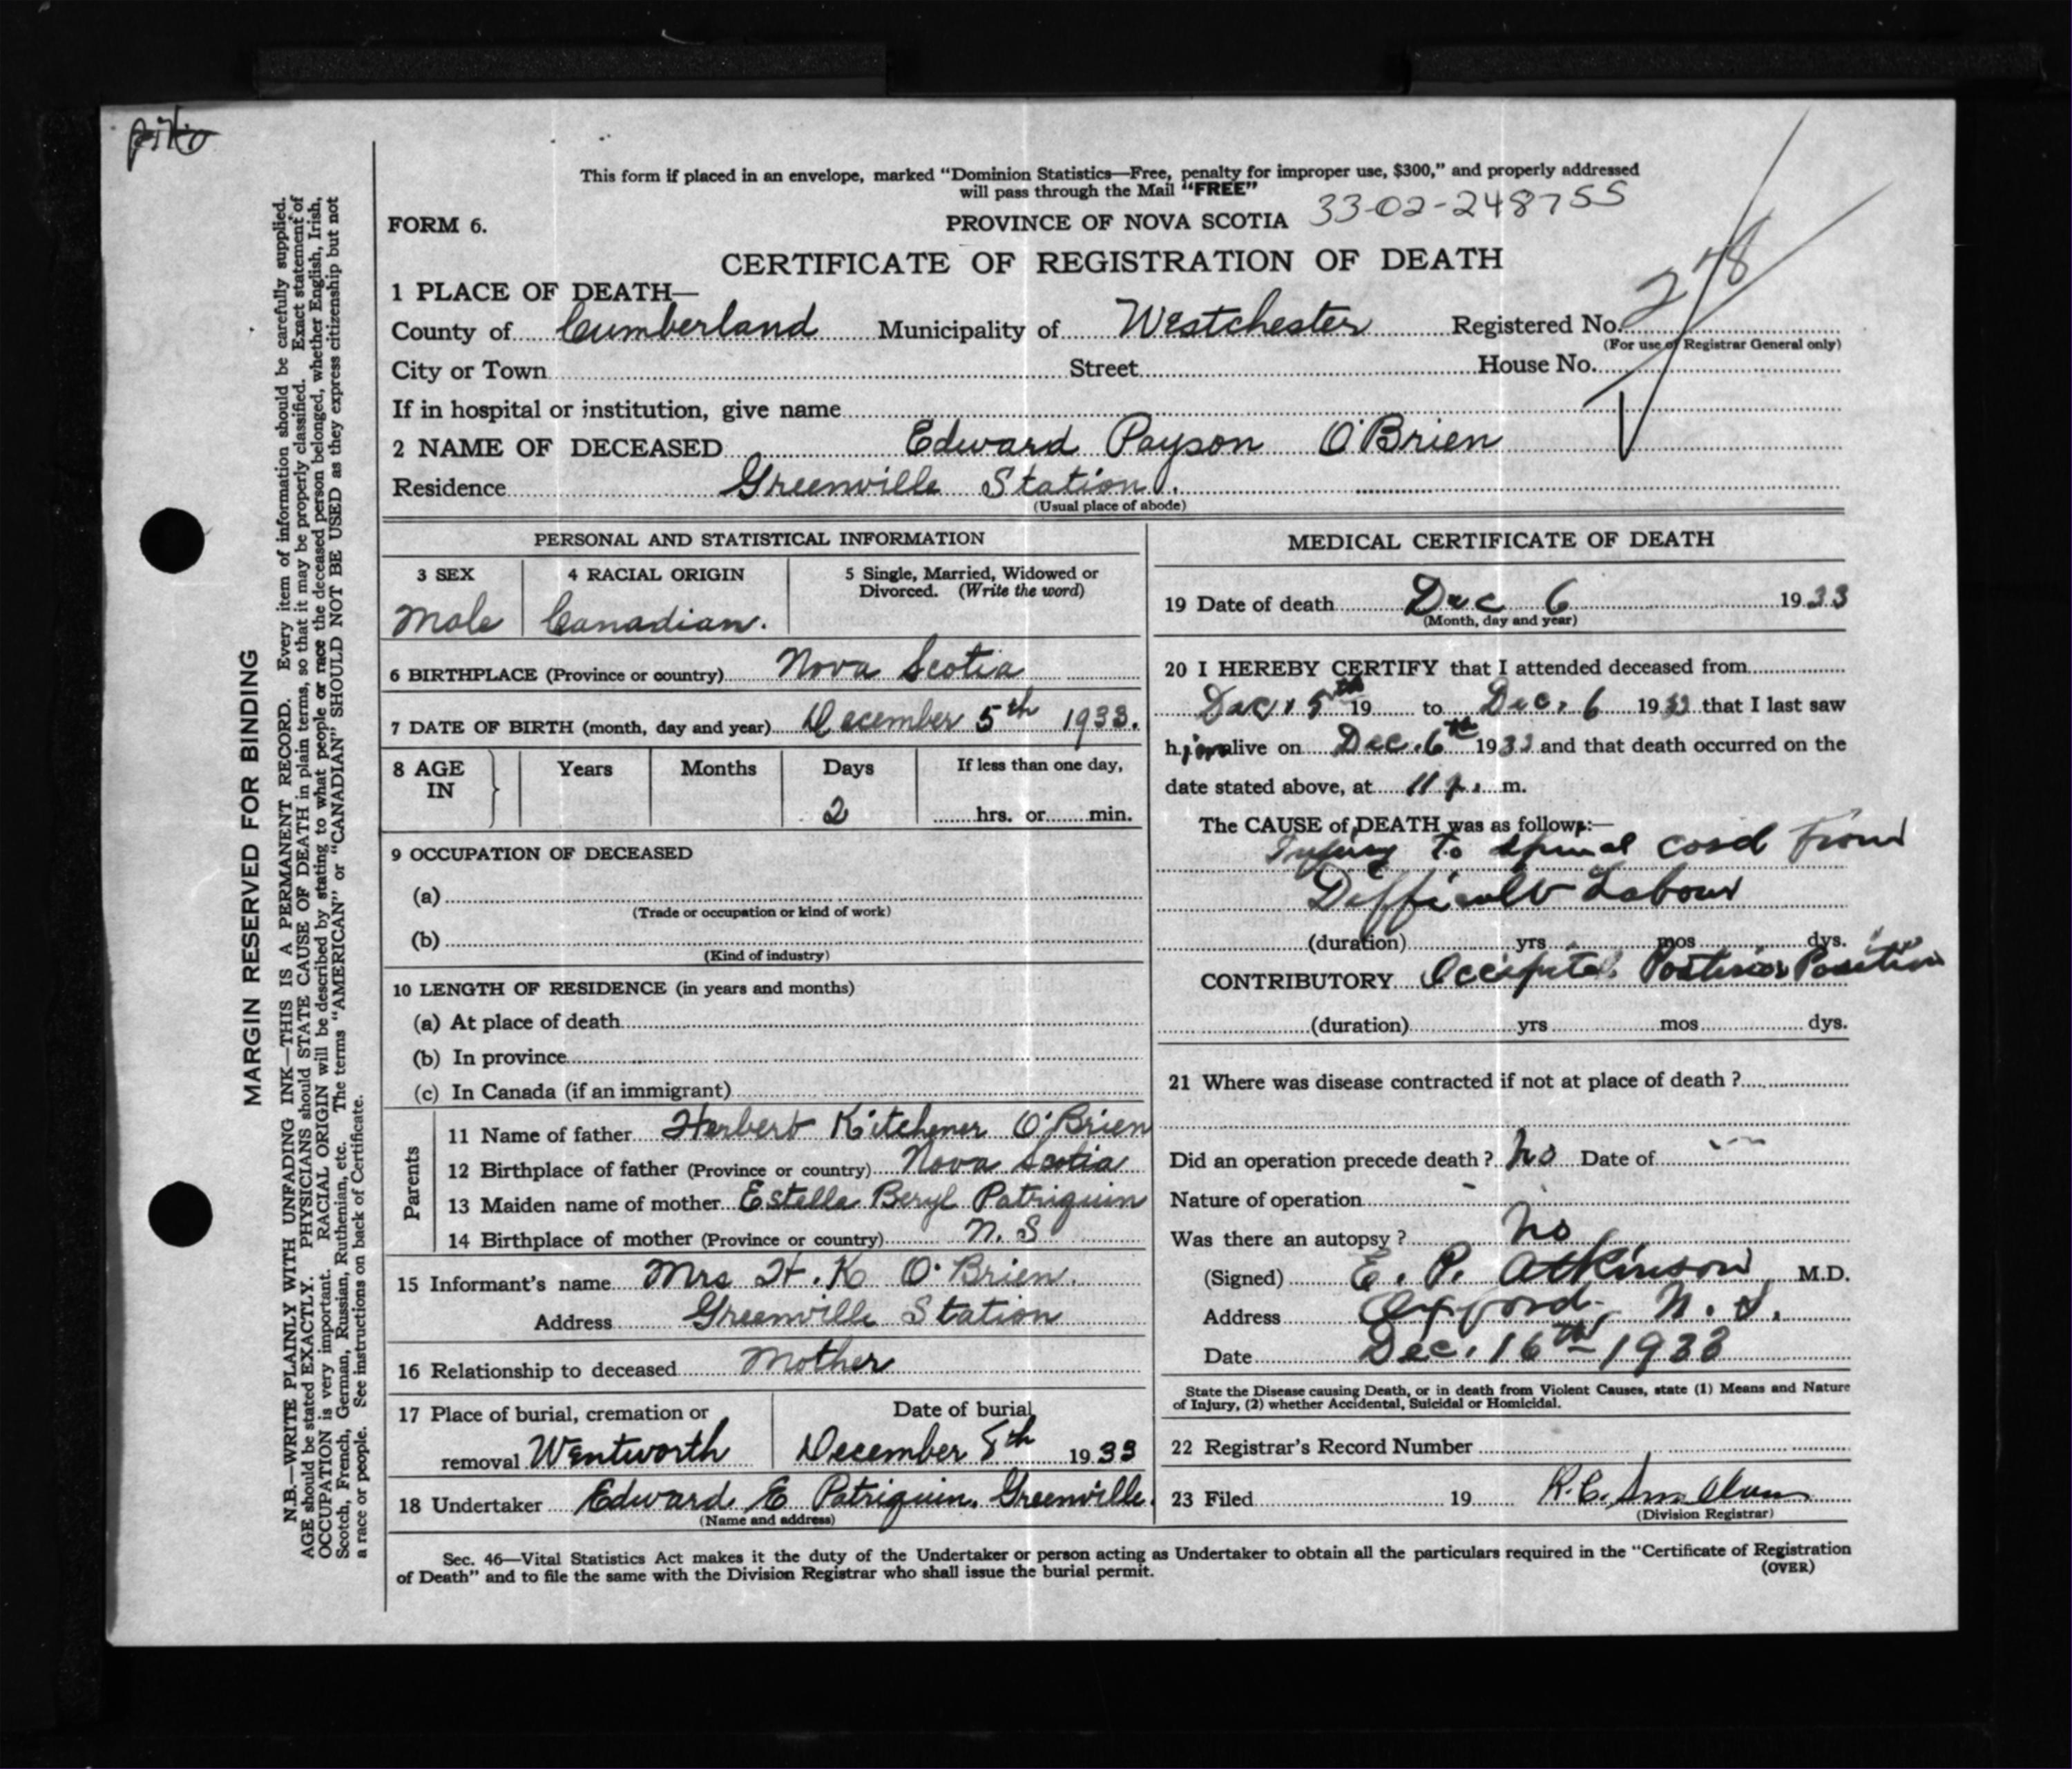 This form if placed in an envelope, marked "Dominion Statistics—Free, penalty for improper use, $300," and properly addressed
will pass through the Mail "FREE"
FORM 6.
PROVINCE OF NOVA SCOTIA 33-02-248755
CERTIFICATE OF REGISTRATION OF DEATH
1 PLACE OF DEATH—
County of Cumberland Municipality of Westchester Registered No. 278
(For use of Registrar General only)
City or Town Street House No.
If in hospital or institution, give name
2 NAME OF DECEASED Edward Payson O'Brien
Residence Greenville Station.
(Usual place of abode)
PERSONAL AND STATISTICAL INFORMATION
3 SEX 4 RACIAL ORIGIN 5 Single, Married, Widowed or
Divorced. (Write the word)
Male Canadian.
6 BIRTHPLACE (Province or country) Nova Scotia
7 DATE OF BIRTH (month, day and year) December 5th 1933.
8 AGE Years Months Days If less than one day,
IN
2 hrs. or min.
9 OCCUPATION OF DECEASED
(a)
(Trade or occupation or kind of work)
(b)
(Kind of industry)
10 LENGTH OF RESIDENCE (in years and months)
(a) At place of death
(b) In province
(c) In Canada (if an immigrant)
Parents
11 Name of father Herbert Kitchener O'Brien
12 Birthplace of father (Province or country) Nova Scotia
13 Maiden name of mother Estella Beryl Patriquin
14 Birthplace of mother (Province or country) N. S
15 Informant's name Mrs H. K O'Brien.
Address Greenville Station
16 Relationship to deceased Mother
17 Place of burial, cremation or Date of burial
removal Wentworth December 8th 1933
18 Undertaker Edward E Patriquin. Greenville.
(Name and address)
MEDICAL CERTIFICATE OF DEATH
19 Date of death Dec 6 1933
(Month, day and year)
20 I HEREBY CERTIFY that I attended deceased from
Dec. 5th 19 to Dec. 6 1933 that I last saw
him alive on Dec. 6th 1933 and that death occurred on the
date stated above, at 11 p. m.
The CAUSE of DEATH was as follows:—
Injury to spinal cord from
Difficult Labour
(duration) yrs mos dys.
CONTRIBUTORY Occipital Posterior Position
(duration) yrs mos dys.
21 Where was disease contracted if not at place of death ?
Did an operation precede death ? No Date of
Nature of operation
Was there an autopsy ? No
(Signed) E. P. Atkinson, M.D.
Address Oxford, N. S.
Date Dec. 16th 1933
State the Disease causing Death, or in death from Violent Causes, state (1) Means and Nature
of Injury, (2) whether Accidental, Suicidal or Homicidal.
22 Registrar's Record Number
23 Filed 19 R. C.
(Division Registrar)
Sec. 46—Vital Statistics Act makes it the duty of the Undertaker or person acting as Undertaker to obtain all the particulars required in the "Certificate of Registration
of Death" and to file the same with the Division Registrar who shall issue the burial permit.
(OVER)
MARGIN RESERVED FOR BINDING
N.B.—WRITE PLAINLY WITH UNFADING INK—THIS IS A PERMANENT RECORD. Every item of information should be carefully supplied.
AGE should be stated EXACTLY. PHYSICIANS should STATE CAUSE OF DEATH in plain terms, so that it may be properly classified. Exact statement of
OCCUPATION is very important. RACIAL ORIGIN will be described by stating to what people or race the deceased person belonged, whether English, Irish,
Scotch, French, German, Russian, Ruthenian, etc. The terms "AMERICAN" or "CANADIAN" SHOULD NOT BE USED as they express citizenship but not
a race or people. See instructions on back of Certificate.